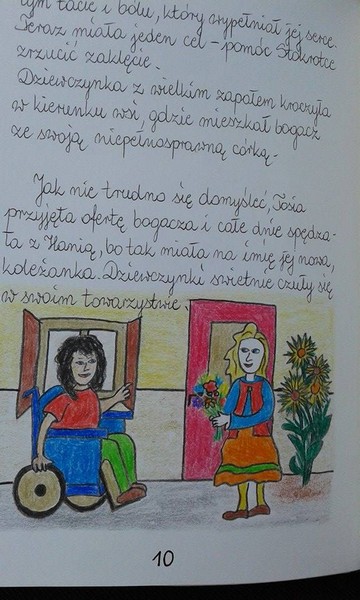 tym fakcie i bólu, który wypełniał jej serce.
Teraz miała jeden cel - pomóc Stokrotce
zrzucić zaklęcie.
Dziewczynka z wielkim zapałem kroczyła
w kierunku wsi, gdzie mieszkał bogacz
ze swoją niepełnosprawną córką.
Jak nie trudno się domyśleć, Tosia
przyjęta ofertę bogacza i całe dnie spędza-
ła z Hanią, bo tak miała na imię jej nowa,
koleżanka. Dziewczynki świetnie czuły się
w swoim towarzystwie.
10